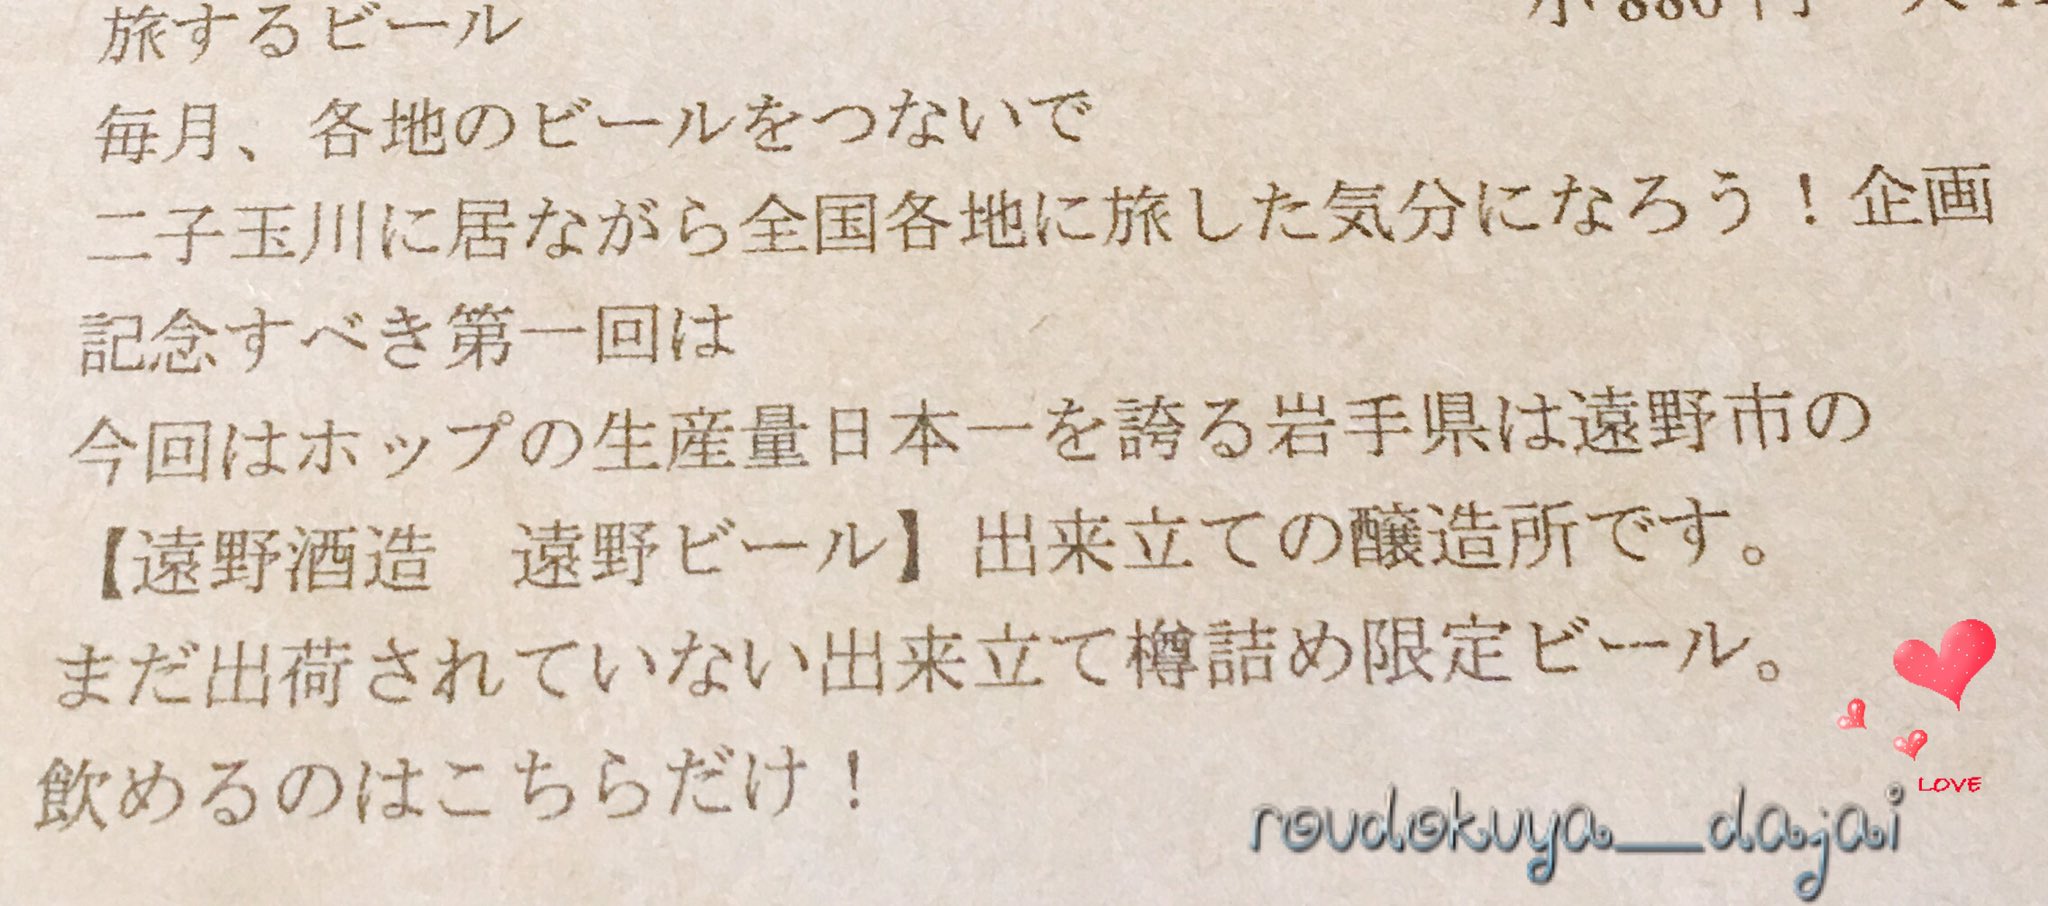 旅するビール
小 880 円
毎月、各地のビールをつないで
二子玉川に居ながら全国各地に旅した気分になろう！企画
記念すべき第一回は
今回はホップの生産量日本一を誇る岩手県は遠野市の
【遠野酒造　遠野ビール】出来立ての醸造所です。
まだ出荷されていない出来立て樽詰め限定ビール。
飲めるのはこちらだけ！
LOVE
roudokuya__dajai